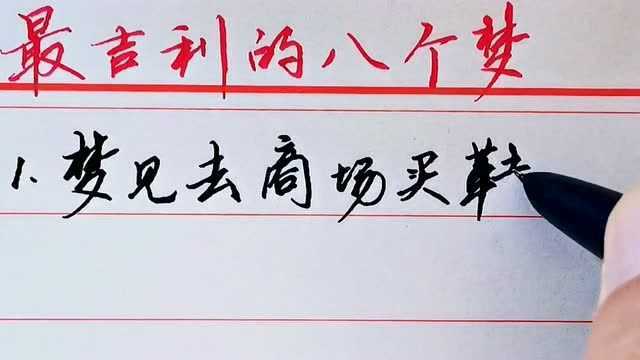 最吉利的八个梦
1.梦见去商场买鞋